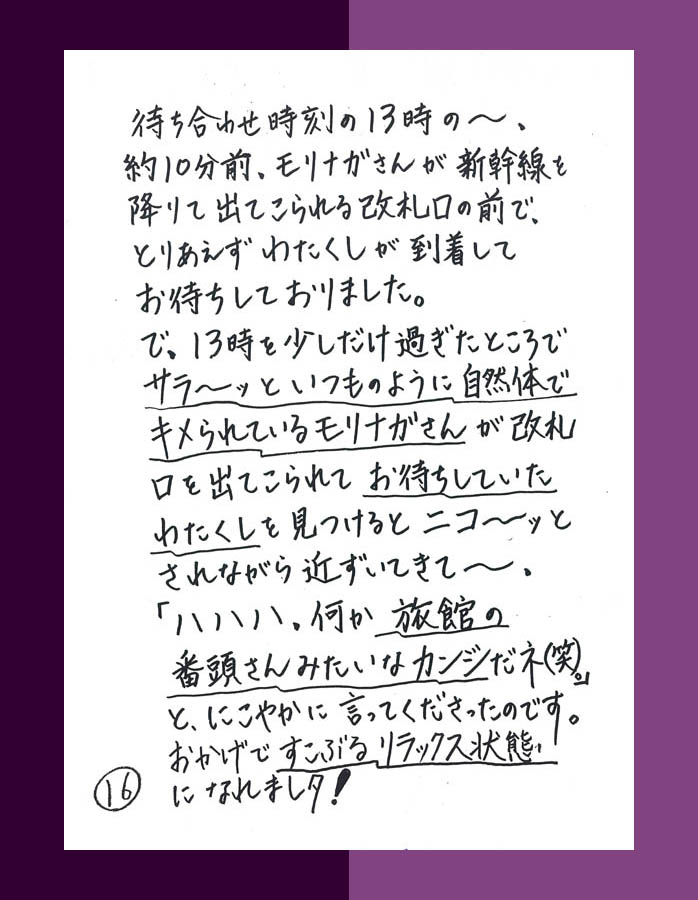 待ち合わせ時刻の13時の〜、
約10分前、モリナガさんが新幹線を
降りて出てこられる改札口の前で、
とりあえずわたくしが到着して
お待ちしておりました。
で、13時を少しだけ過ぎたところで
サラ〜ッといつものように自然体で
キメられているモリナガさんが改札
口を出てこられてお待ちしていた
わたくしを見つけるとニコ〜ッと
されながら近ずいてきて〜、
「ハハハ。何か旅館の
番頭さんみたいなカンジだネ(笑)。」
と、にこやかに言ってくださったのです。
おかげですこぶるリラックス状態
になれましタ!
16